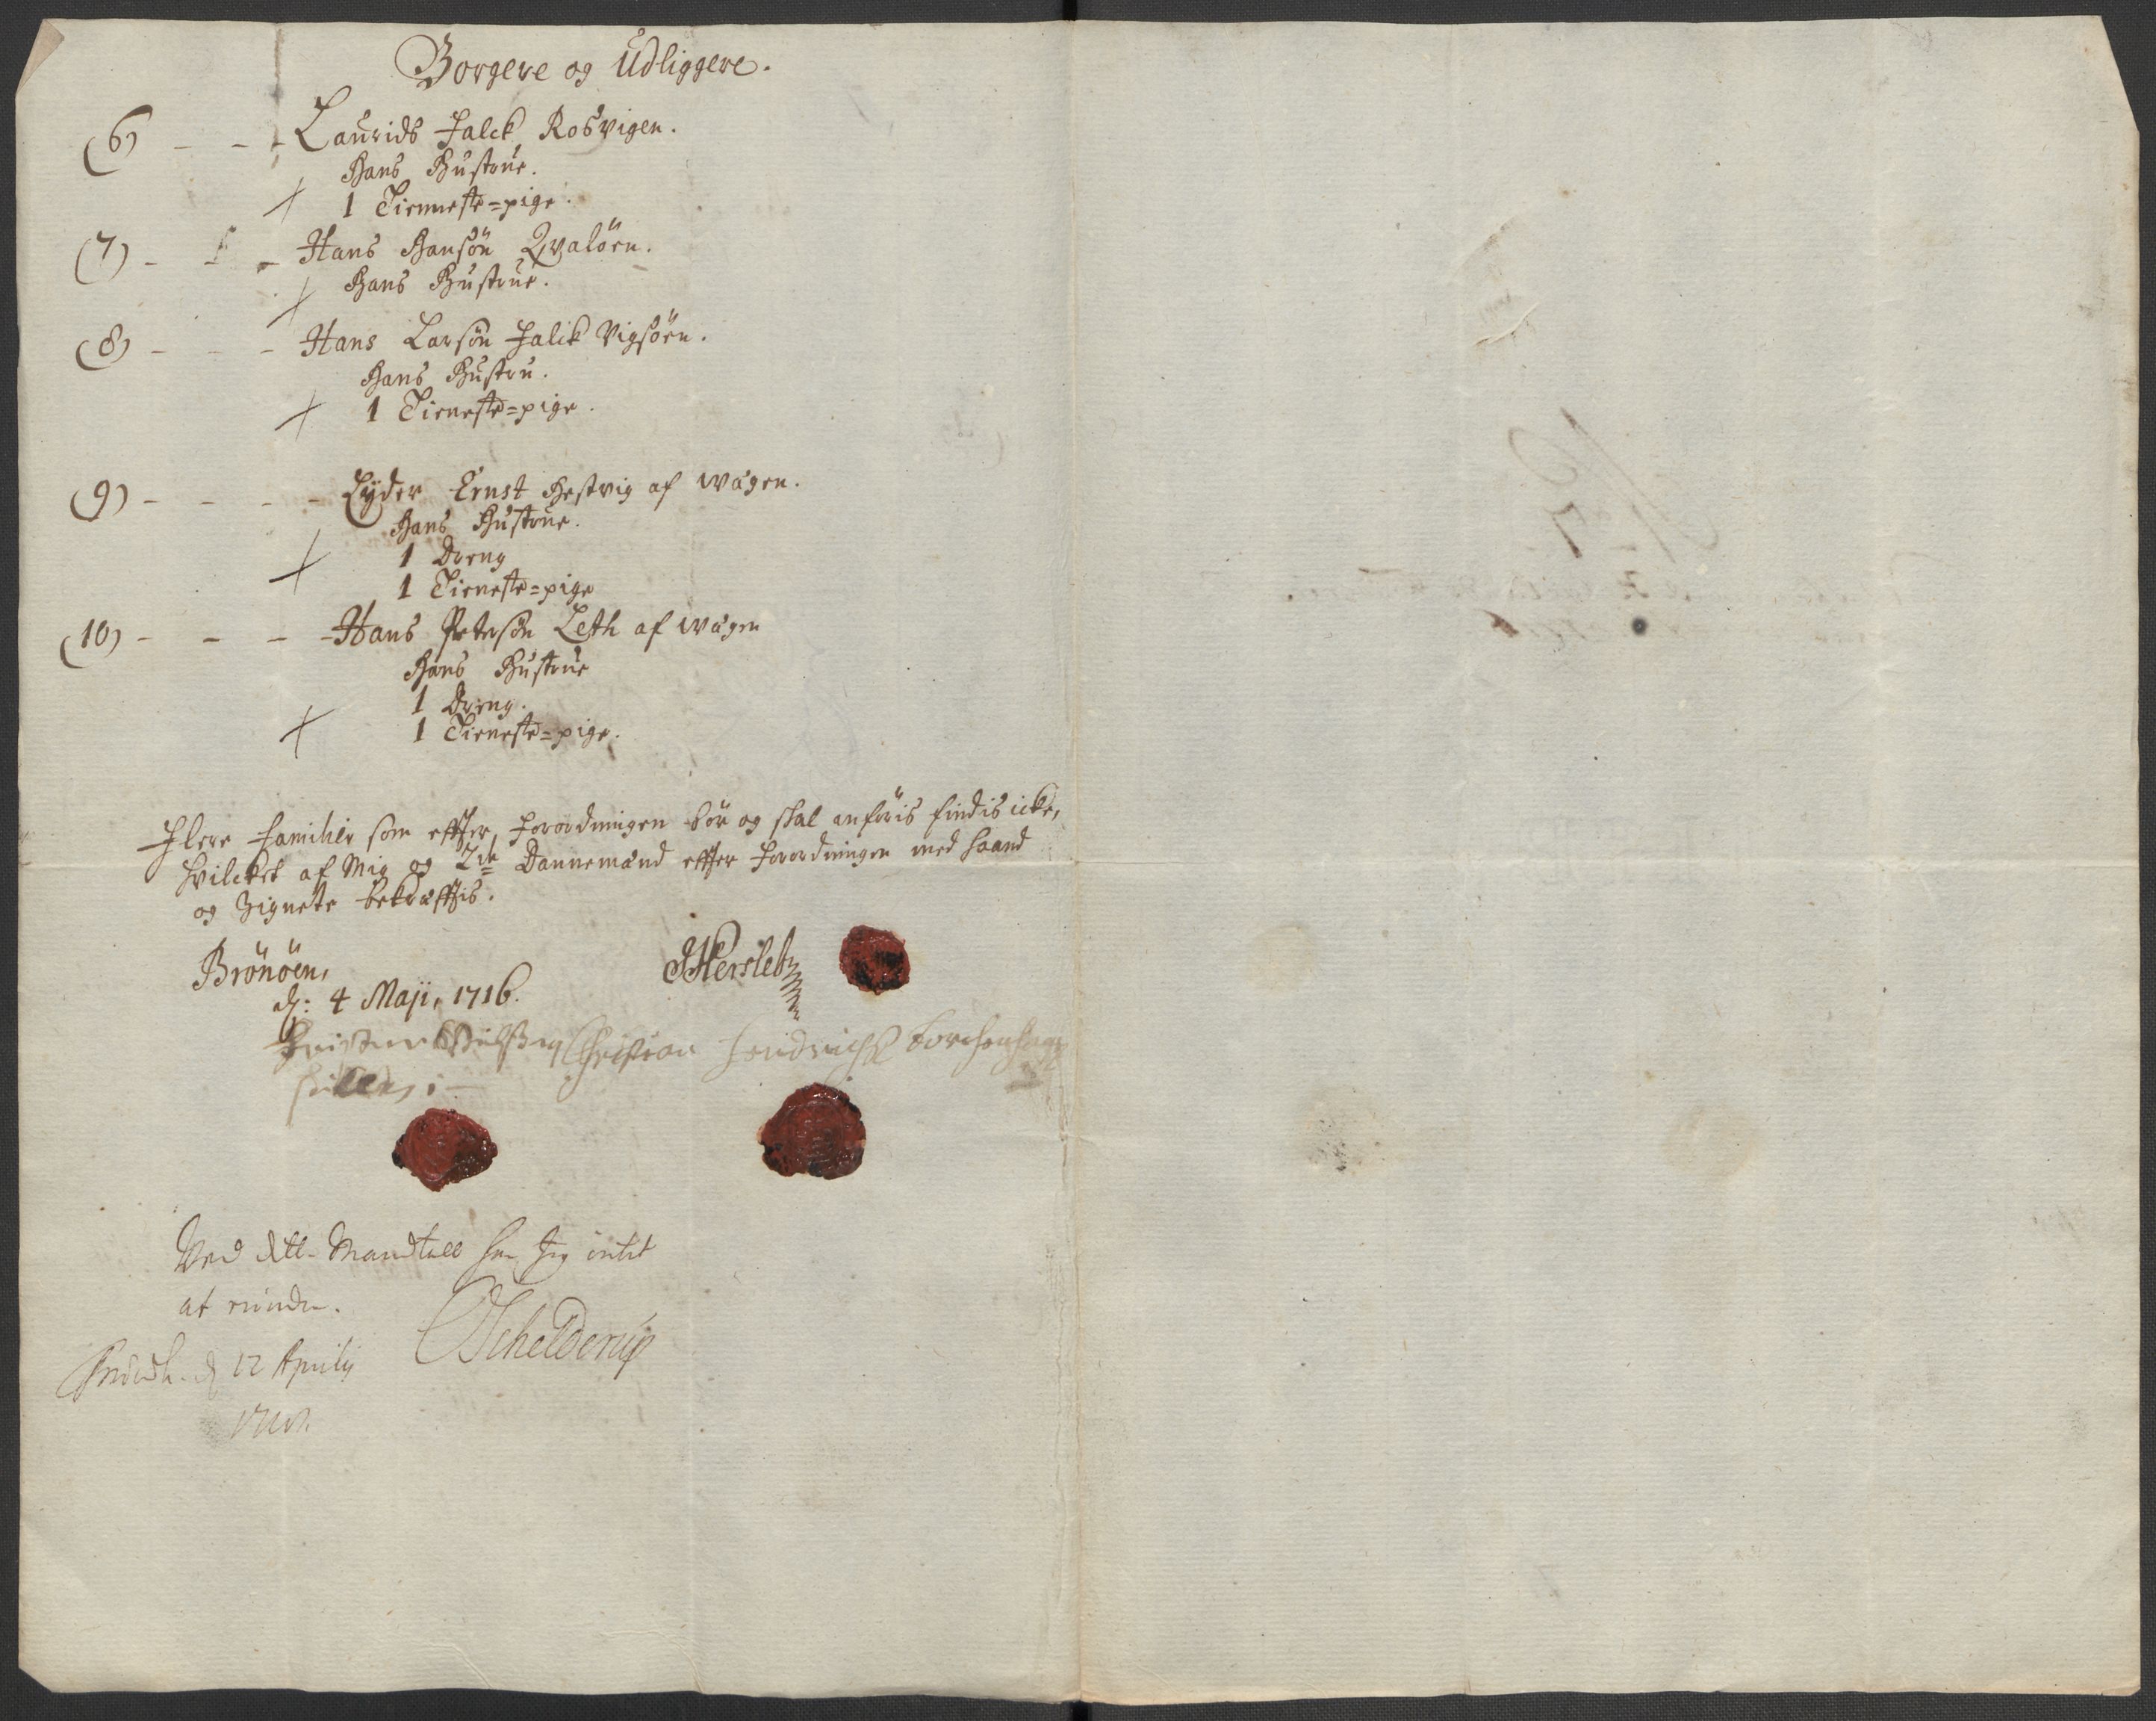 Borgere og Udliggere.
(6) - - - Laurids Falck Rosvigen.
Hans Hustrue.
+ 1 Tienneste=pige.
(7) - - - Hans Hansön Qvalöen.
+ Hans Hustrue.
(8) - - - Hans Larsön Falck Vigsöen.
Hans Hustru.
+ 1 Tieneste=pige.
(9) - - - - Lyder Ernst Hestvig af Waagen.
Hans Hustrue.
+ 1 Dreng
1 Tieneste=pige
(10) - - - - Hans Petersön Leth af Waagen
Hans Hustrue
1 Dreng.
+ 1 Tieneste=pige.
Flere Familier som effter Forordningen bör og skal anföris findis icke,
hvilcket af Mig og 2de Dannemænd effter Forordningen med Haand
og Zignete bekræfftis.
Brönöen,
d: 4 Maji, 1716. JHersleb
Christian Hendrichs
Ved dette Mandtall har Jeg intet
at erindre.
CSchelderup
d 12 Aprily